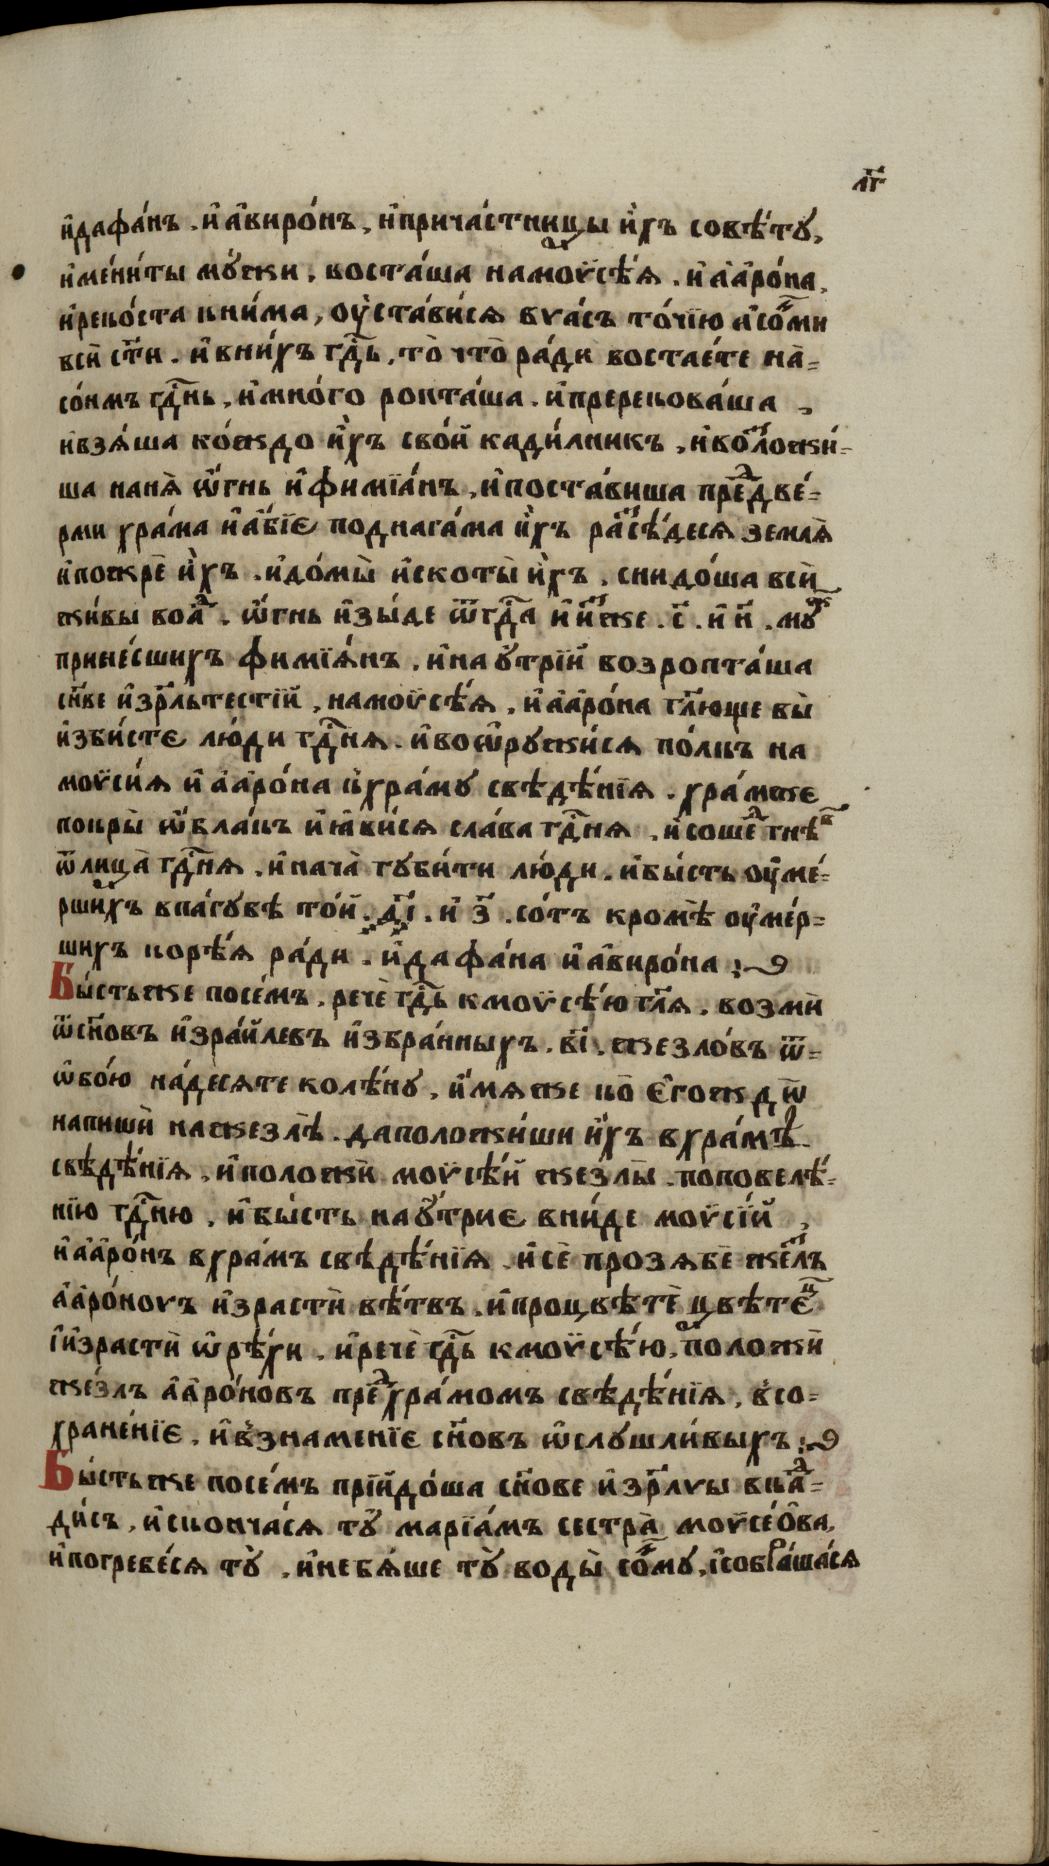 л҃г
и҆дафа́нъ . и҆ а҆виро́нъ , и҆причастницы и҆́хъ совѣ́ту ,
и҆мени́ты мꙋ́жи , воста́ша намоѵсѣ́я . и҆ а҆аро́на ,
и҆реко́ста книма , оу҆ста́вися вꙋасъ то́чїю и҆со́ⷨми
вси ст҃и . и҆вни́хъ гд҇ь , то̀ что̀ ра́ди востае́те на̀-
со́нмъ гд҇нь , и҆мно́го ропта́ша . и҆пререкова́ша ,
и҆взя́ша ко́ждо и҆́хъ сво́й кади́лникъ , и҆воⷥложи́-
ша наня̀ ѡ҆́гнь и҆ фимїа́нъ , и҆поста́виша преⷣдве́-
рми хра́ма и҆ а҆́бїе поднага́ма и҆́хъ раⷥсѣ́деся земля̀
и҆пожрѐ и҆́хъ . и҆до́мы̀ и҆скоты̀ и҆́хъ , снидо́ша всѝ
живы воаⷣ . ѡ҆́гнь и҆зы́де ѿгд҇а и҆ и҆ⷤже . с҃ . и҆ н҃ . мꙋⷤ
прине́сшихъ фимїя́нъ , и҆на ꙋ҆́трїй возропта́ша
сн҃ве и҆зр҃льтестїй , намоѵсѣ́я , и҆ а҆аро́на гл҃юще вы̀
и҆зби́сте лю́ди гд҇ня . и҆воѡрꙋжи́ся по́лкъ на
моѵси́я и҆ а҆аро́на кхра́мꙋ свѣдѣ́нїя . хра́мже
покры̀ ѡ҆́блакъ и҆ꙗ҆ви́ся сла́ва гд҇ня , и҆сошеⷣ гнѣⷡ
ѿлица̀ гд҇ня . и҆нача̀ гꙋби́ти лю́ди . и҆бы́сть оу҆ме́-
ршихъ впа́гꙋбѣ то́й . д҃і . и҆ з҃ . со́тъ кромѣ̀ оу҆ме́р-
шихъ корѣ́я ра́ди . и҆дафа́на и҆ а҆виро́на ;
Бы́стьже посе́мъ . речѐ гд҇ь кмоѵсѣ́ю гл҃я . возмѝ
ѿсн҃овъ и҆зра́илевъ и҆збра́нныхъ . в҃і . жезло́въ ѿ-
ѡ҆бо́ю на́десяте колѣ́нꙋ , и҆́мяже ко є҆гождѡ
напишѝ нажезлѣ̀ . даположи́ши и҆́хъ вхра́мѣ
свѣдѣ́нїя , и҆положѝ моѵсѣ́й жезлы̀ . поповелѣ́-
нїю гд҇ню , и҆бы́сть наꙋ҆́трие вни́де моѵсїй ,
и҆ а҆аро́нъ вхра́мъ свѣдѣ́нїя и҆сѐ прозябѐ жеⷥлъ
а҆аро́новъ и҆зрастѝ вѣ́твь . и҆процвѣтѐ цвѣте́ⷰ
и҆израстѝ ѡ҆рѣ́хи . и҆речѐ гд҇ь кмоѵсѣ́ю , положѝ
же́злъ а҆аро́новъ преⷣхра́момъ свѣдѣ́нїя , всо-
хране́нїе , и҆взнаменїе сн҃овъ ѡ҆слꙋшли́выхъ ;
Бы́стьже посе́мъ прїйдо́ша сн҃ове и҆зр҃лвы вкаⷣ-
ди́съ , и҆сконча́ся тꙋ̀ марїа́мъ сестра̀ моѵсео́ва ,
и҆погребе́ся тꙋ̀ , и҆небя́ше тꙋ̀ воды̀ соⷨмꙋ , и҆собра́шася